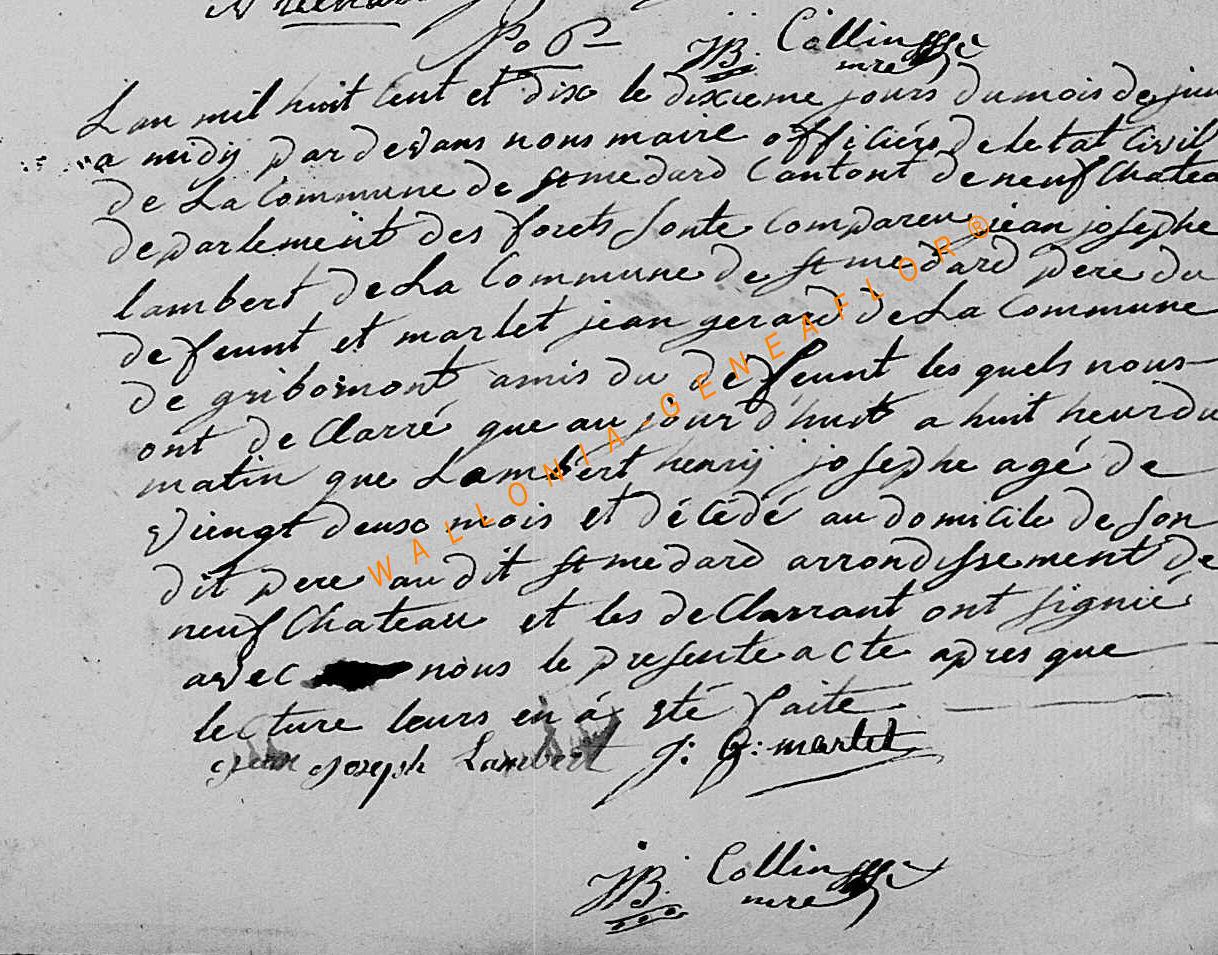 JB. Collin
mre
Lan mil huit Cent et dix le dixieme jours du mois de
a midy par devans nous maire officiérs de letat Civil
de La Commune de st medard Cantont de neuf Chatea
departement des forets sonte compareu jean josephe
lambert de La Commune de st medard pere du
defeunt et marlet jean gerard de La Commune
de gribomont amis du defeunt les quels nous
ont de Clarré que au jour d'huit a huit heur du
matin que Lambert henrij josephe agé de
viengt deux mois et décédé au domicile de son
dit pere au dit st medard arrondissement de
neuf Chateau et les de Clarrant ont signié
avec nous le presente acte apres que
lecture leurs en á eté faite
Jean Joseph Lambert J: G: marlet
JB. Collin
mre
WALLONIA GENEAFLOR®